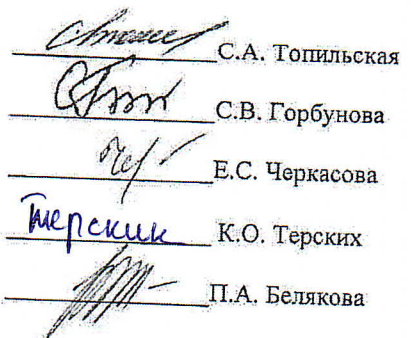 С.А. Топильская
С.В. Горбунова
Е.С. Черкасова
Терских К.О. Терских
П.А. Белякова